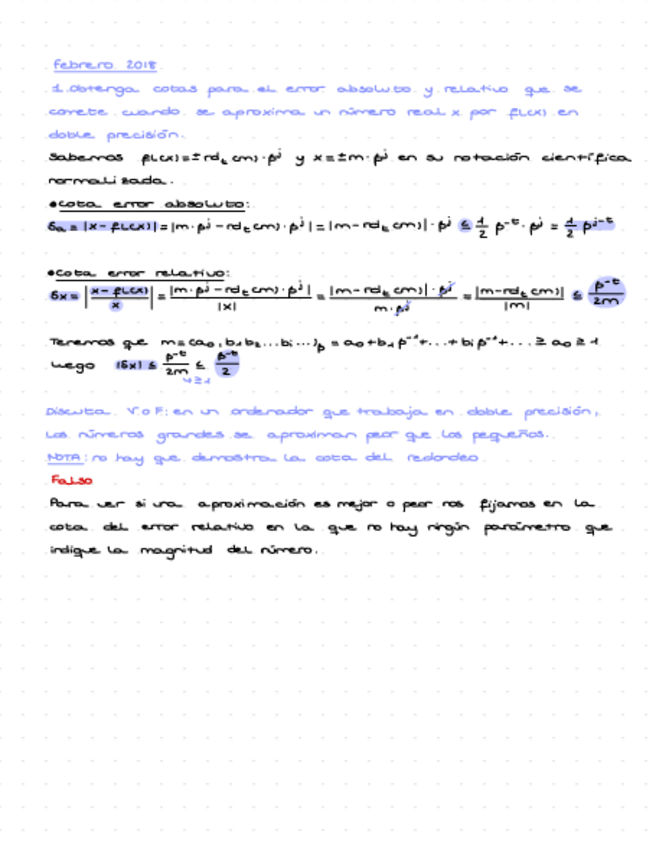 febrero 2018
1. Obtenga cotas para el error absoluto y relativo que se
comete cuando se aproxima un número real x por fl(x) en
doble precisión.
Sabemos fl(x)=±rd_t(m)·β^j y x=±m·β^j en su notación científica
normalizada.
•Cota error absoluto:
δa = |x-fl(x)| = |m·β^j - rd_t(m)·β^j| = |m-rd_t(m)|·β^j ≤ 1/2 β^-t·β^j = 1/2 β^j-t
•Cota error relativo:
δx = |x-fl(x)/x| = |m·β^j - rd_t(m)·β^j|/|x| = |m-rd_t(m)|·β^j/m·β^j = |m-rd_t(m)|/|m| ≤ β^-t/2m
Tenemos que m=(a0,b1b2...bi...)β = a0+b1β^-1+...+biβ^-i+... ≥ a0 ≥ 1
Luego |δx| ≤ β^-t/2m ≤ β^-t/2
Discuta V o F: en un ordenador que trabaja en doble precisión,
los números grandes se aproximan peor que los pequeños.
NOTA: no hay que demostra la cota del redondeo
Falso
Para ver si una aproximación es mejor o peor nos fijamos en la
cota del error relativo en la que no hay ningún parámetro que
indique la magnitud del número.